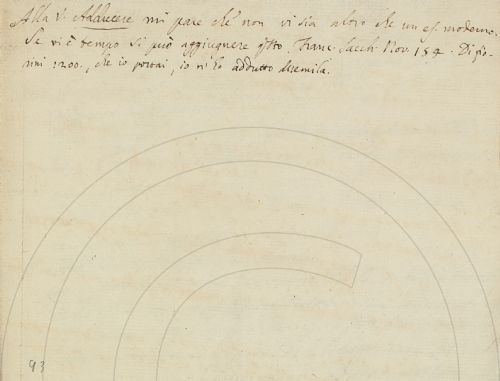 Alla V. Adducere mi pare che non vi sia altro che un es. moderno.
Se vi è tempo si può aggiugnere qsto. Franc. Sacch. Nov. 154. Di fio-
rini 1200., che io portai, io n'ho addutto
93